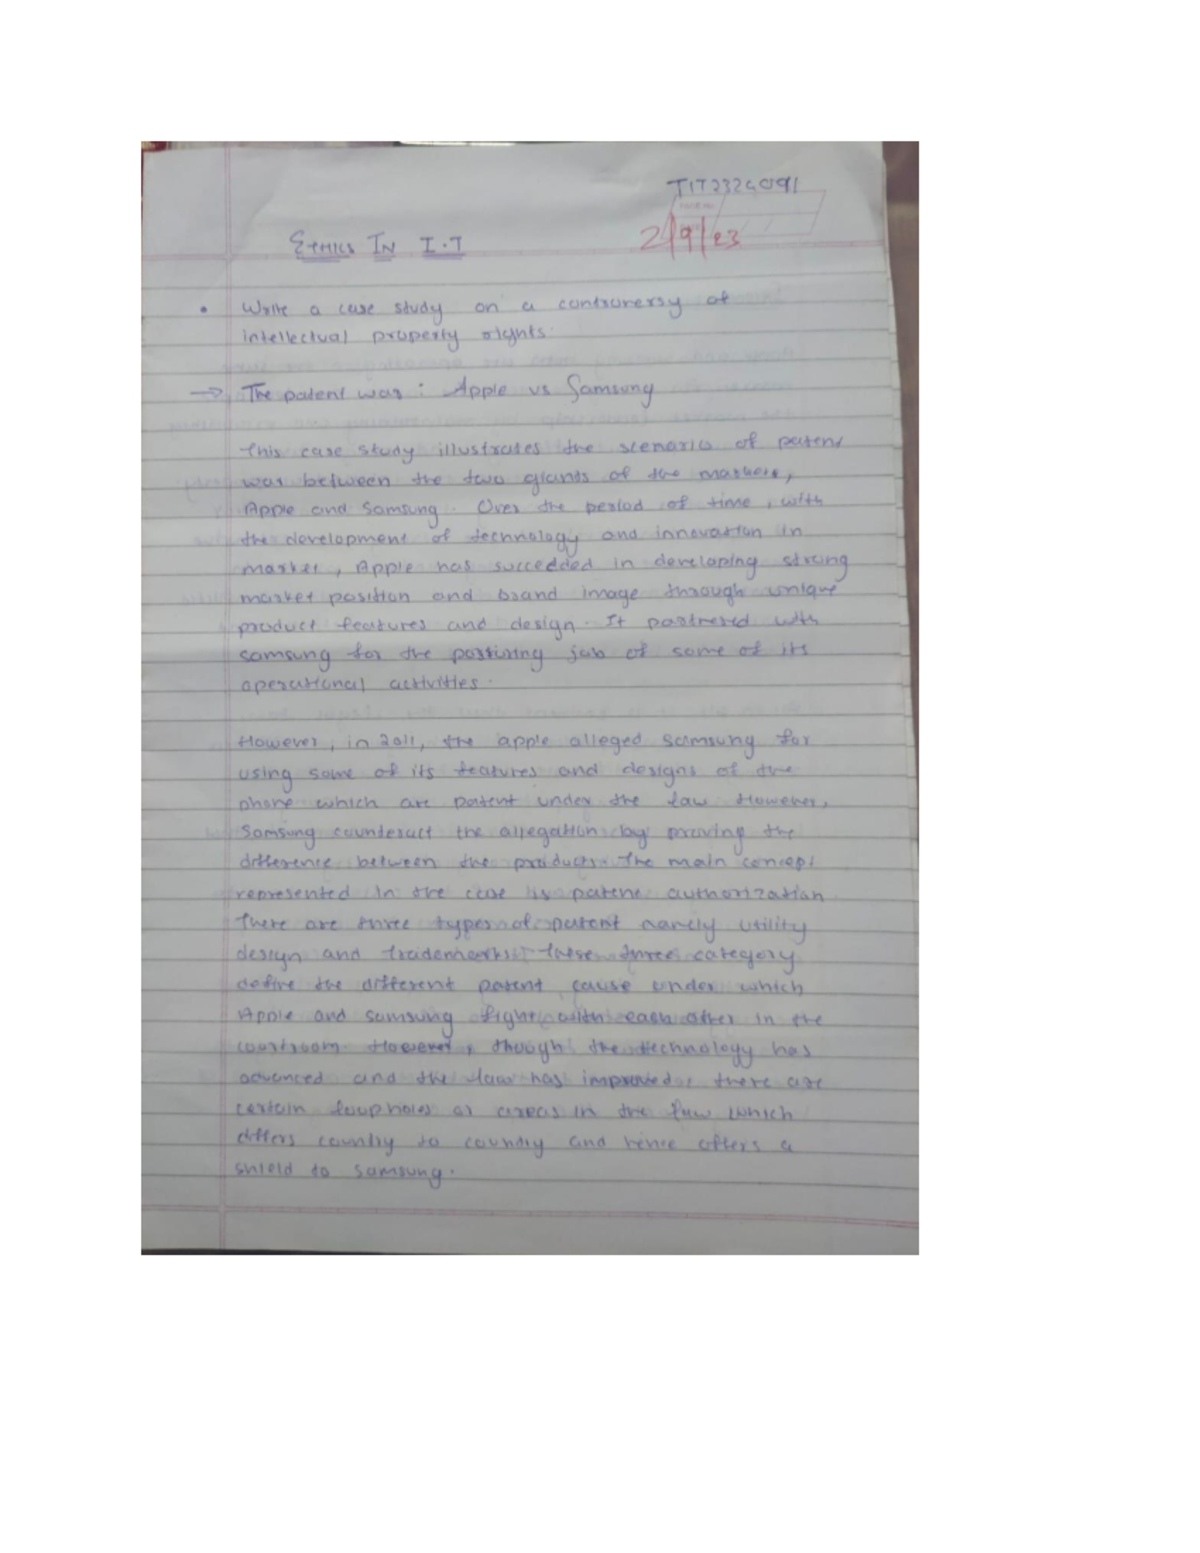 TIT2324091
2/9/23
ETHICS IN I.T
• Write a case study on a controversy of
intellectual property rights.
→ The patent war : Apple vs Samsung
This case study illustrates the scenario of patent
war between the two giants of the market,
Apple and Samsung. Over the period of time, with
the development of technology and innovation in
market, Apple has succedded in developing strong
market position and brand image through unique
product features and design. It partnered with
samsung for the job of some of its
operational activities.
However, in 2011, the apple alleged samsung for
using some of its features and designs of the
phone which are patent under the law. However,
Samsung counteract the allegation by proving the
difference between the products. The main concept
represented in the case is patent authorization
There are three types of patent namely utility
design and trademarks. These three category
define the different patent cause under which
Apple and samsung fight with each other in the
courtroom. However, though the technology has
advanced and the law has improved, there are
certain loup holes or areas in the law which
differs country to country and hence offers a
shield to samsung.